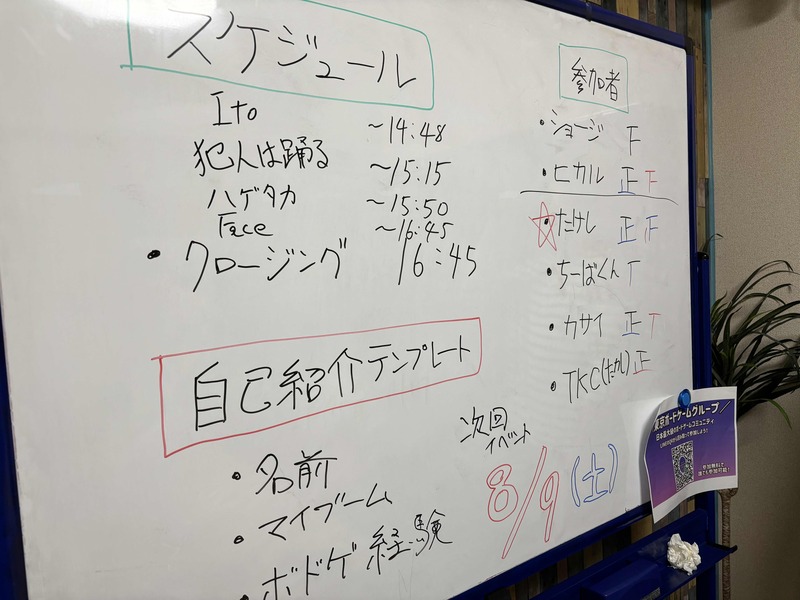 スケジュール
Ito ~14:48
犯人は踊る ~15:15
ハゲタカ ~15:50
Face ~16:45
・クロージング 16:45
自己紹介テンプレート
・名前
・マイブーム
・ボドゲ経験
参加者
・ショージ F
・ヒカル 正 F
・たけし 正 F
・ちーばくん T
・カサイ 正 T
・TKC(たかし) 正
次回
イベント
8/9(土)
東京ボードゲームグループ
日本最大級のボードゲームコミュニティ
参加無料で
誰でも参加可能!